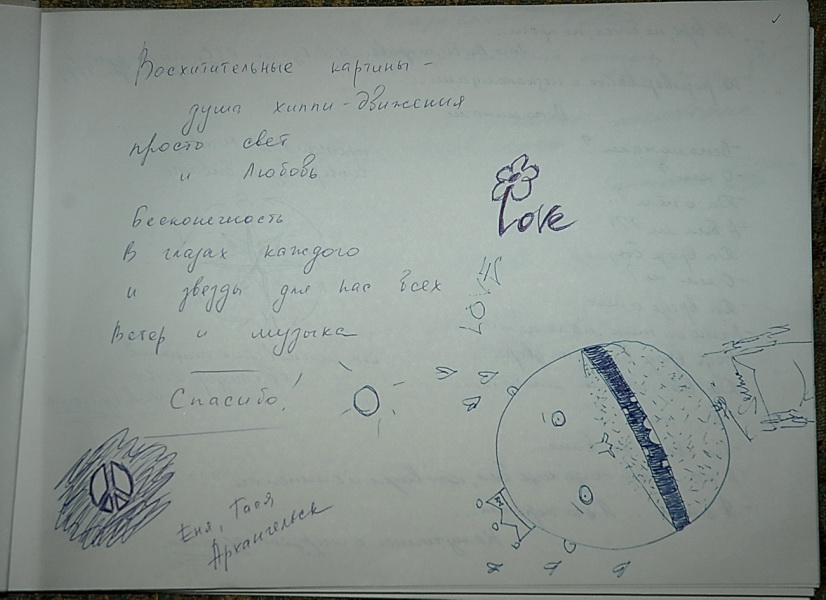 Восхитительные картины -
душа хиппи-движения
просто свет
и Любовь
Бесконечность
В глазах каждого
и звезды для нас всех
Ветер и музыка
Спасибо!
Love
LOVE
Еня, Тася
Архангельск